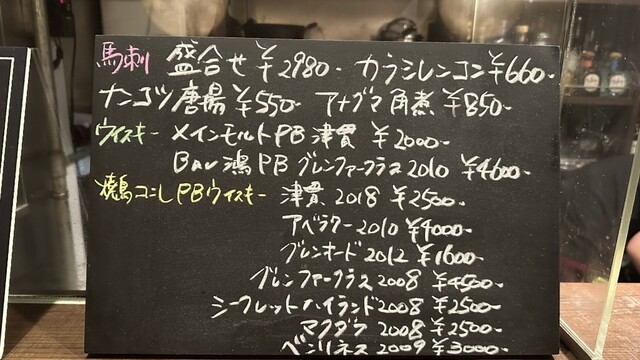 馬刺 盛合せ ¥2980- カラシレンコン¥660-
ナンコツ唐揚¥550- アナグマ角煮 ¥850-
ウイスキー メインモルトPB 津貫 ¥2000-
Bar 鴻 PB グレンファークラス 2010 ¥4600-
焼鳥コニシPBウイスキー 津貫 2018 ¥2500-
アベラワー2010 ¥4000-
グレンオード2012 ¥1600-
グレンファークラス2008 ¥4500-
シークレットハイランド2008 ¥2500-
マクダフ 2008 ¥2500-
ベンリネス 2009 ¥3000-